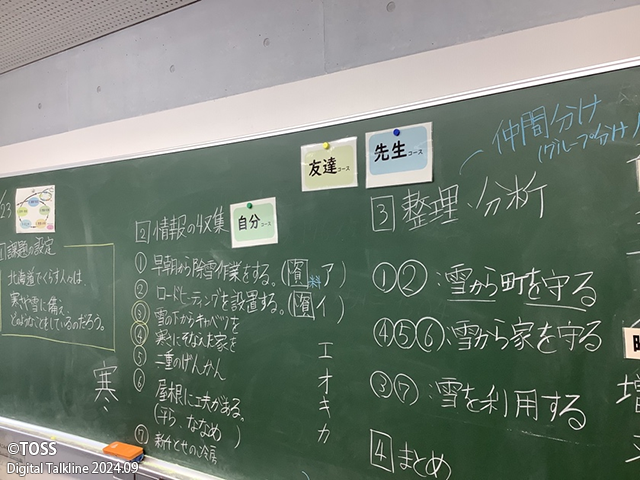 23
課題の設定
北海道でくらす人々は、
寒さや雪に備え、
どのようなことをしているのだろう。
寒
2 情報の収集
自分コース
① 早朝から除雪作業をする。(資料ア)
② ロードヒーティングを設置する。(資イ)
③ 雪の下からキャベツを
④ 寒さにそなえた家を エ
⑤ 二重のげんかん オ
⑥ 屋根に工夫がある。 キ
(平ら、ななめ) カ
⑦
友達コース
先生コース
仲間分け
(グループ分け)
3 整理・分析
①②:雪から町を守る
④⑤⑥:雪から家を守る
③⑦:雪を利用する
4 まとめ
増
©TOSS
Digital Talkline 2024.09